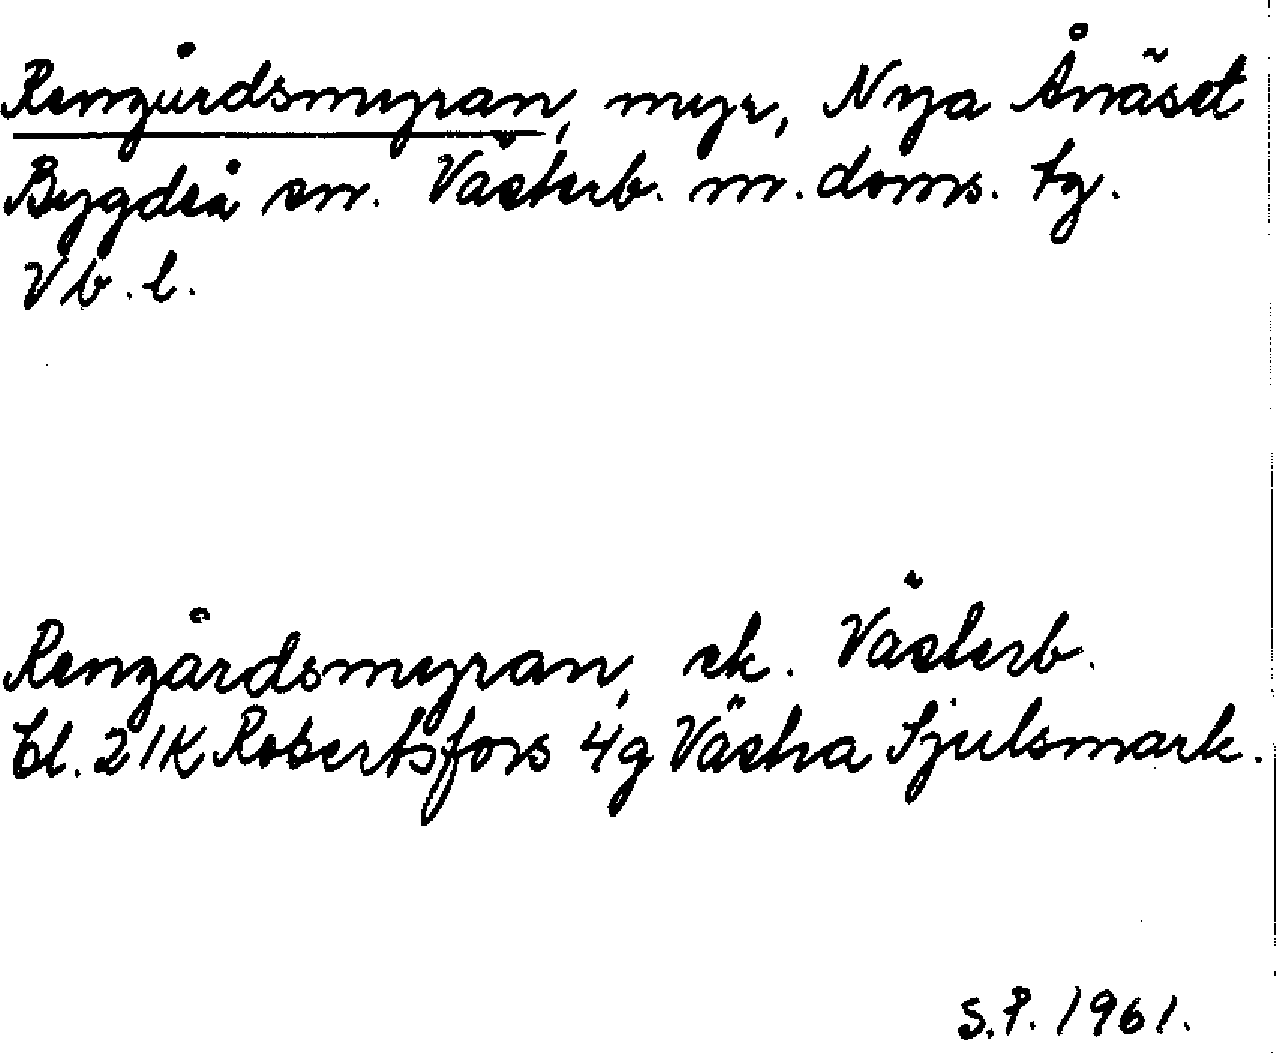 Rengårdsmyran, myr, Nya Ånäset
Bygdeå sn. Västerb. m. doms. tg.
Vb. l.
Rengårdsmyran, ek. Västerb.
bl. 21K Robertsfors 4g Västra Sjulsmark.
S.P. 1961.